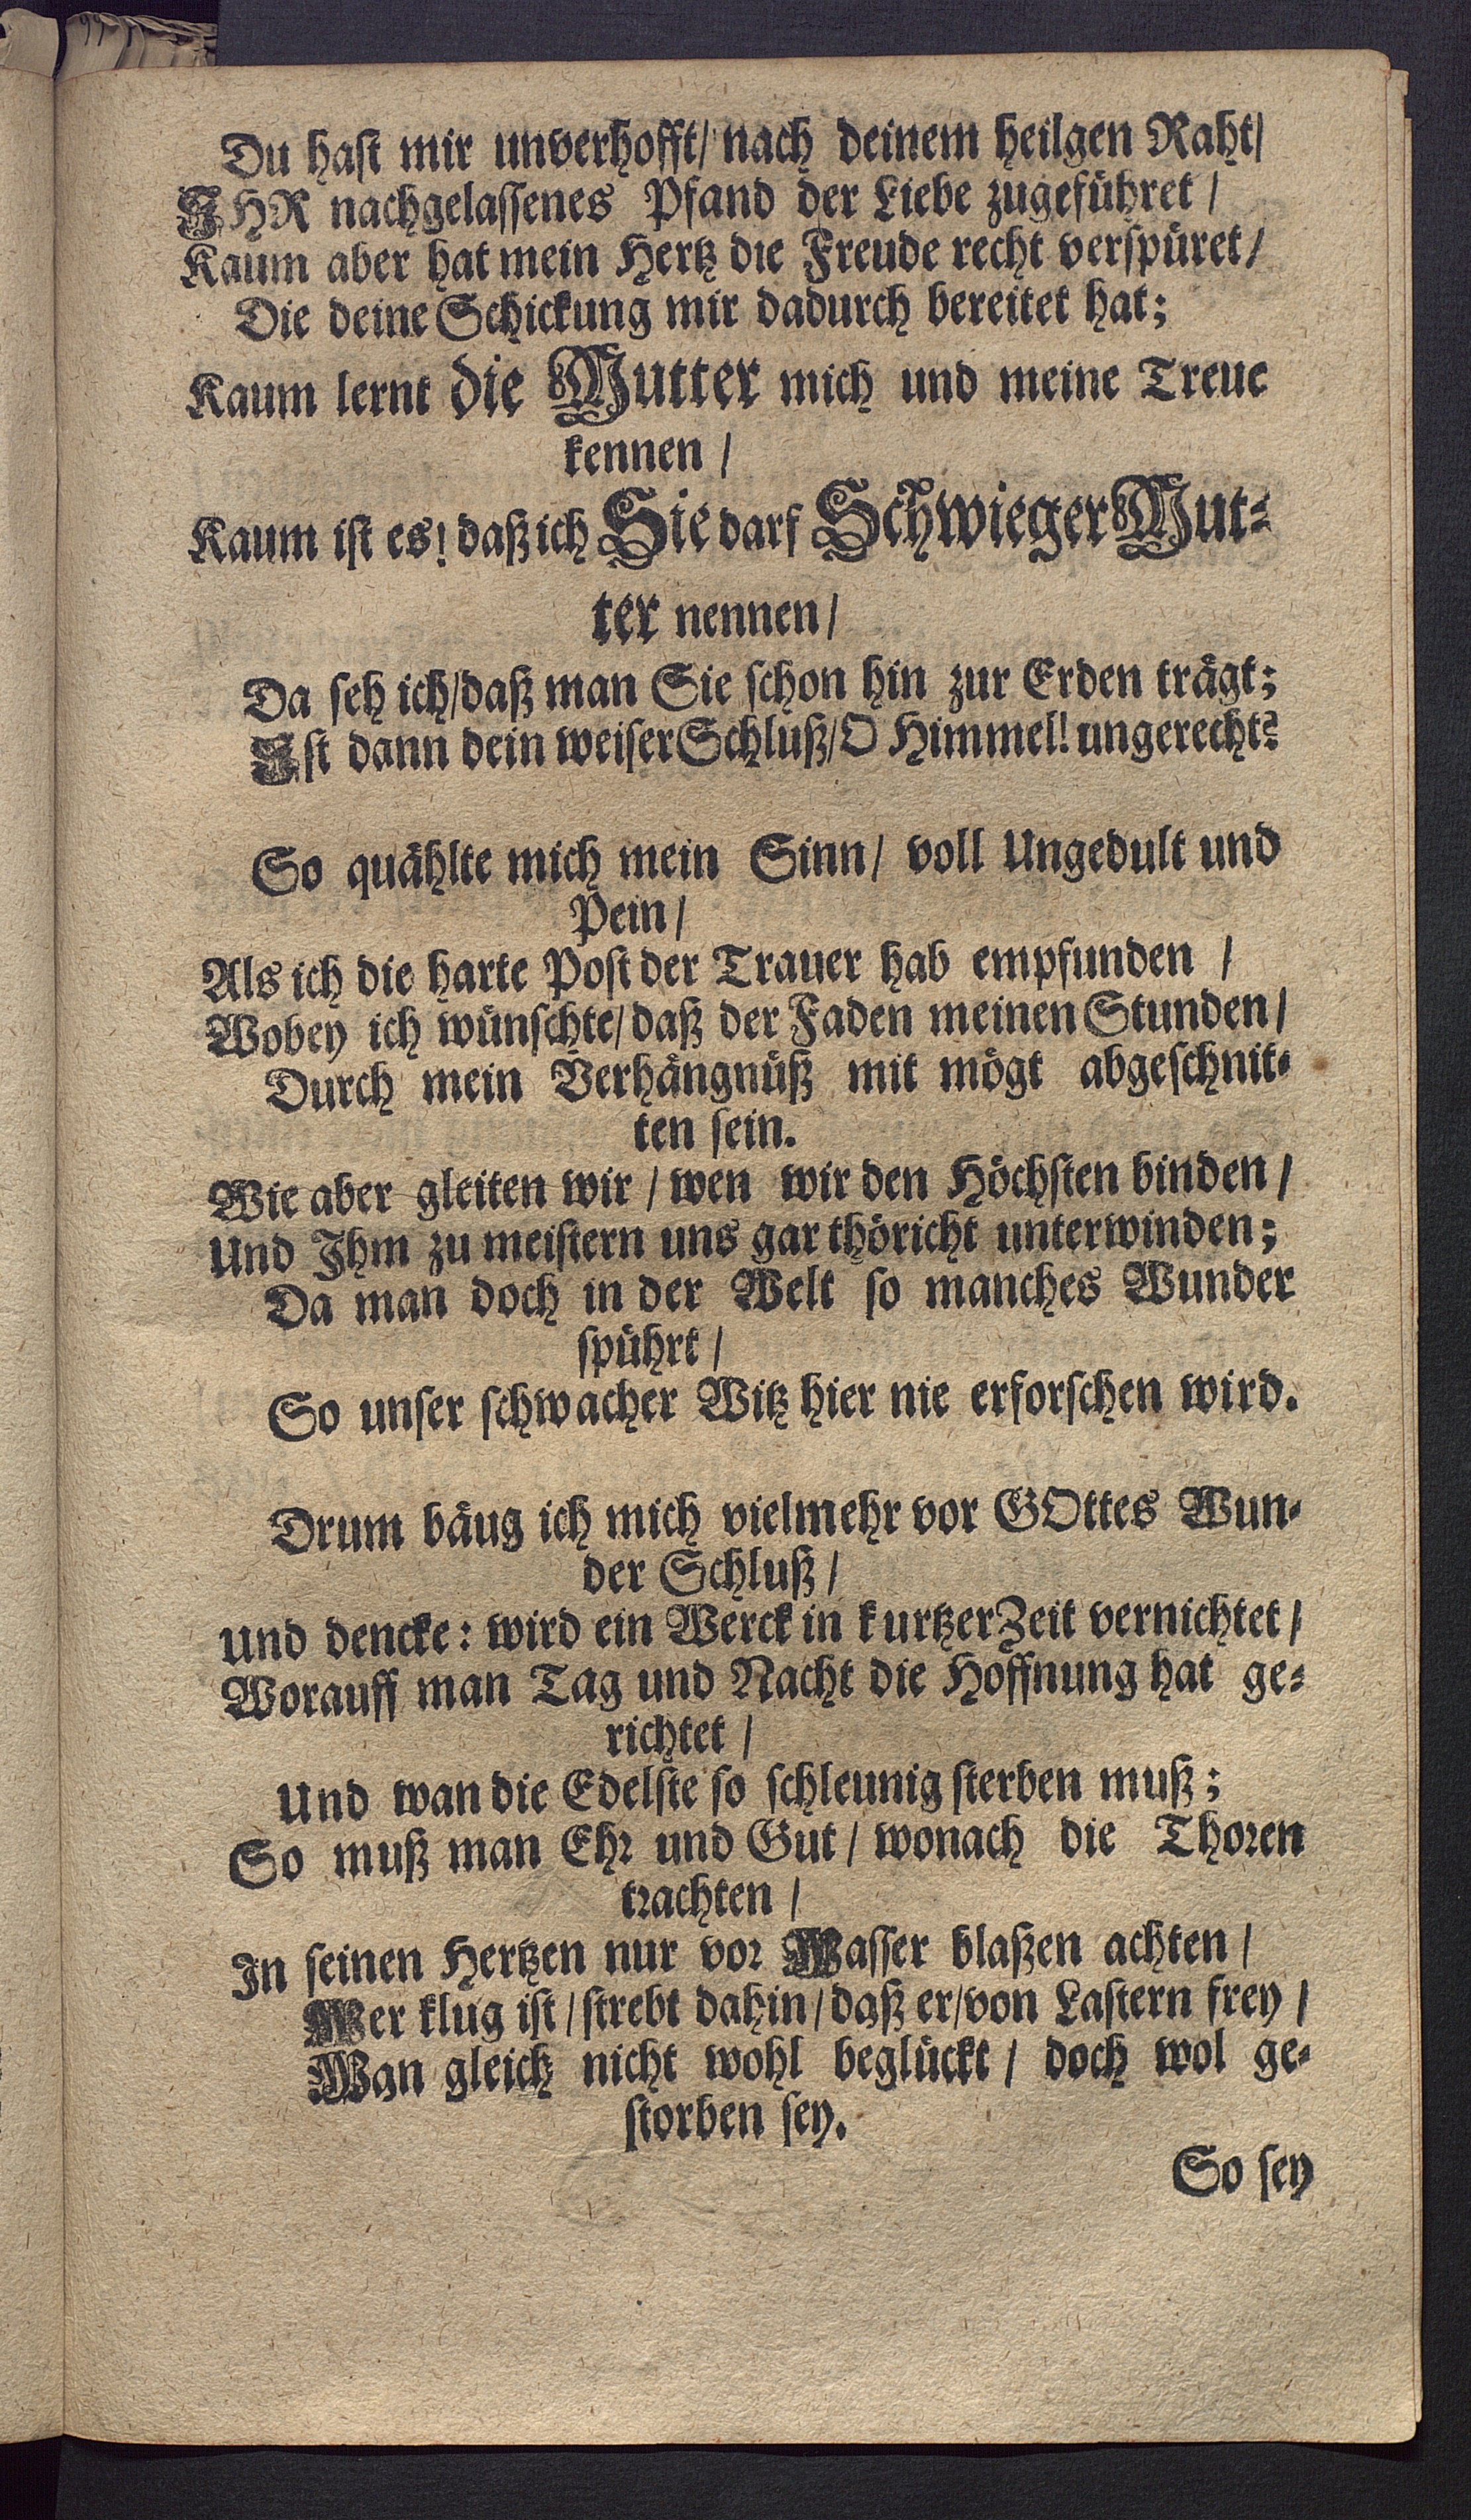 Du hast mir unverhofft/ nach deinem heilgen Raht/
IHR nachgelassenes Pfand der Liebe zugeführet /
Kaum aber hat mein Hertz die Freude recht verspüret/
Die deine Schickung mir dadurch bereitet hat;
Kaum lernt die Mutter mich und meine Treue
kennen /
Kaum ist es! daß ich Sie darf SchwiegerMut-
ter nennen/
Da seh ich/daß man Sie schon hin zur Erden trägt;
Ist dann dein weiser Schluß/O Himmel! ungerecht?
So quählte mich mein Sinn/ voll Ungedult und
Pein/
Als ich die harte Post der Trauer hab empfunden /
Wobey ich wünschte/daß der Faden meinen Stunden/
Durch mein Verhängnüß mit mögt abgeschnit-
ten sein.
Wie aber gleiten wir / wen wir den Höchsten binden/
Und Ihm zu meistern uns gar thöricht unterwinden;
Da man doch in der Welt so manches Wunder
spührt/
So unser schwacher Witz hier nie erforschen wird.
Drum bäug ich mich vielmehr vor GOttes Wun-
der Schluß/
Und dencke: wird ein Werck in kurtzer Zeit vernichtet/
Worauff man Tag und Nacht die Hoffnung hat ge-
richtet /
Und wan die Edelste so schleunig sterben muß;
So muß man Ehr und Gut / wonach die Thoren
trachten /
In seinen Hertzen nur vor Wasser blaßen achten /
Wer klug ist / strebt dahin/ daß er/von Lastern frey /
Wan gleich nicht wohl beglückt / doch wol ge-
storben sey.
So sey